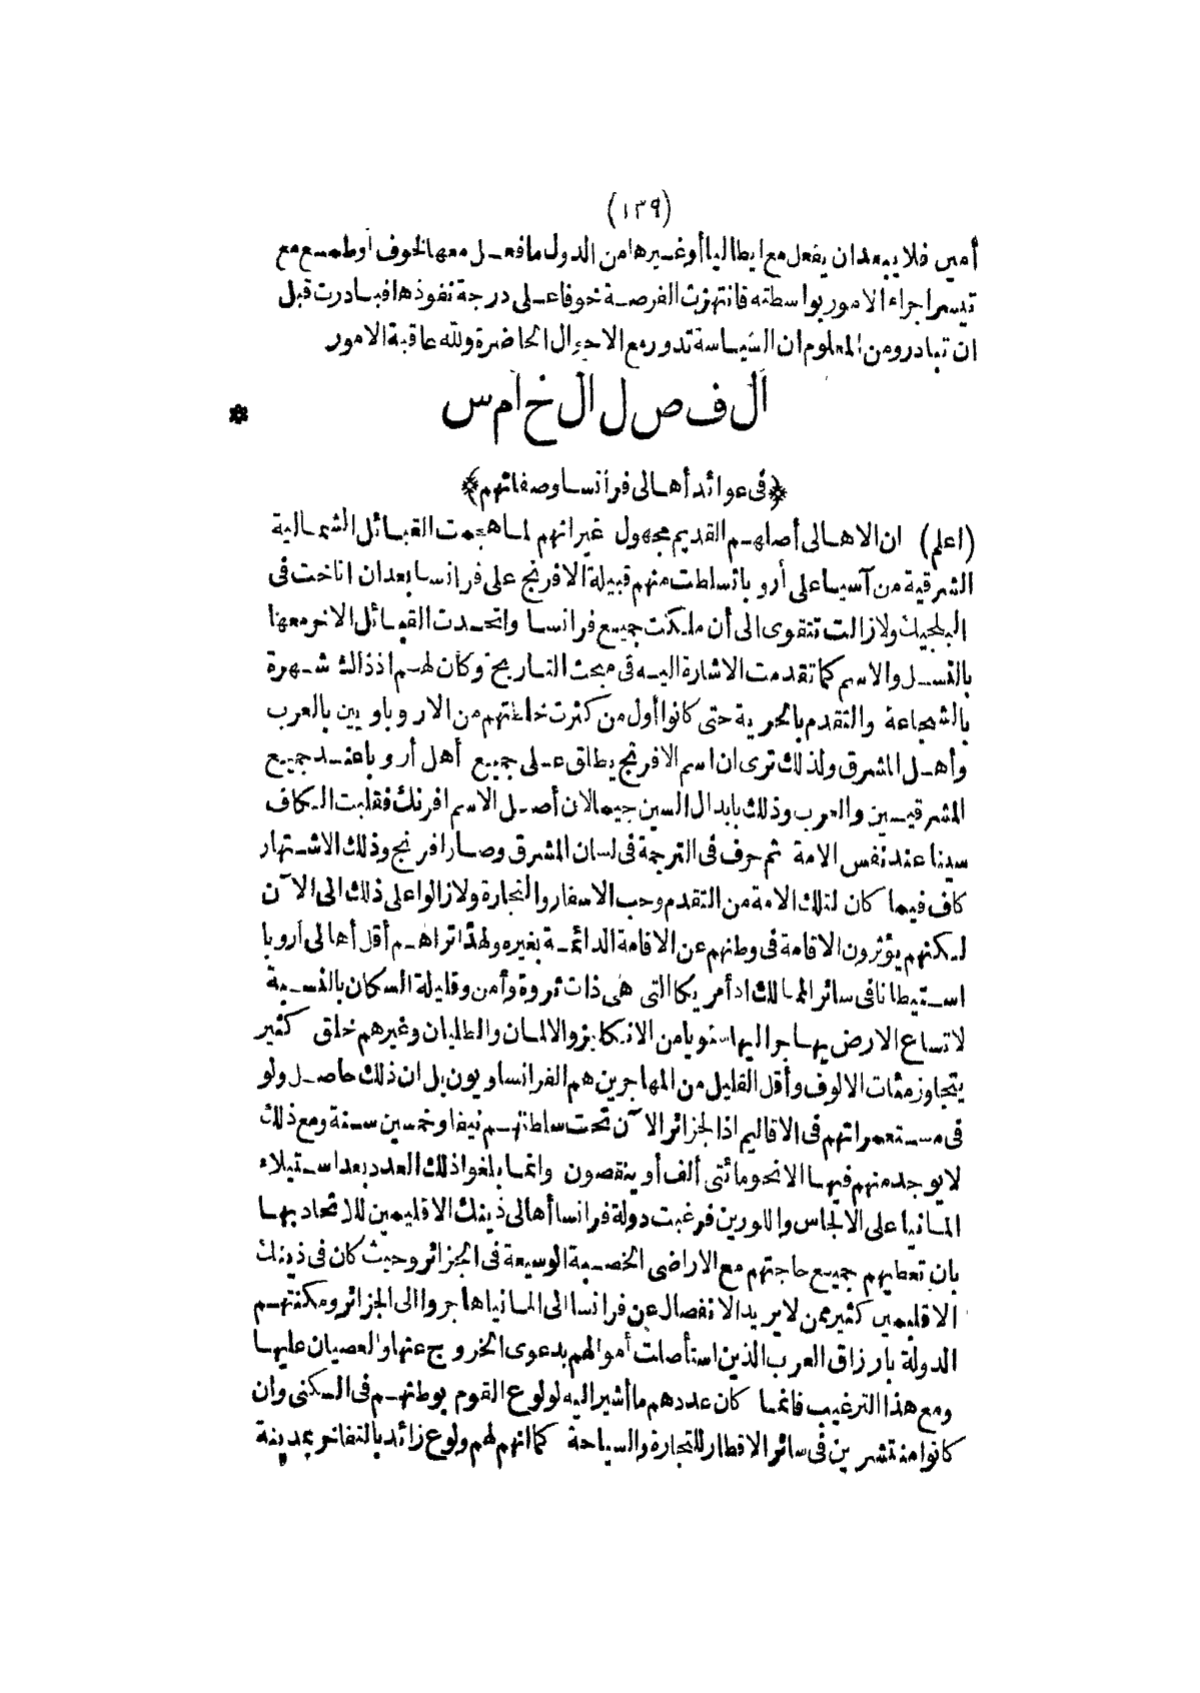 (١٣٩)
أمين فلا يبعد ان يفعل مع ايطاليا أو غيرها من الدول ما فعل معها لخوف أو طمع مع
تيسر اجراء الامور بواسطته فانتهزت الفرصة خوفا على درجة نفوذها فبادرت قبل
ان تبادر ومن المعلوم ان السياسة تدور مع الاحوال الحاضرة ولله عاقبة الامور
الفصل الخامس
﴿فى عوائد أهالى فرانسا وصفاتهم﴾
(اعلم) ان الاهالى أصلهم القديم مجهول غير انهم لما هجمت القبائل الشمالية
الشرقية من آسيا على أروبا تسلطت منهم قبيلة الافرنج على فرانسا بعد ان اناخت فى
البلجيك ولا زالت تتقوى الى أن ملكت جميع فرانسا واتحدت القبائل الاخر معها
بالنسل والاسم كما تقدمت الاشارة اليه فى مبحث التاريخ وكان لهم اذ ذاك شهرة
بالشجاعة والتقدم بالحرية حتى كانوا أول من كثرت خلطتهم من الاروباويين بالعرب
وأهل المشرق ولذلك ترى ان اسم الافرنج يطلق على جميع أهل أروبا عند جميع
المشرقيين والعرب وذلك بابدال السين جيما لان أصل الاسم افرنك فقلبت الكاف
سينا عند نفس الامة ثم حرف فى الترجمة فى لسان المشرق وصار افرنج وذلك الاشتهار
كاف فيما كان لتلك الامة من التقدم وحب الاسفار والتجارة ولا زالوا على ذلك الى الآن
لكنهم يؤثرون الاقامة فى وطنهم عن الاقامة الدائمة بغيره ولهذا تراهم أقل أهالى أروبا
استيطانا فى سائر الممالك اذ أمريكا التى هى ذات ثروة وأمن وقليلة السكان بالنسبة
لاتساع الارض يهاجر اليها سنويا من الانكليز والالمان والطليان وغيرهم خلق كثير
يتجاوز مئات الالوف وأقل القليل من المهاجرين هم الفرانساويون بل ان ذلك حاصل ولو
فى مستعمراتهم فى الاقاليم اذ الجزائر الآن تحت سلطتهم نيفا وخمسين سنة ومع ذلك
لا يوجد منهم فيها الا نحو مائتى ألف أو ينقصون وانما بلغوا ذلك العدد بعد استيلاء
المانيا على الالجاس واللورين فرغبت دولة فرانسا أهالى ذينك الاقليمين للاتحاد بها
بان تعطيهم جميع حاجتهم مع الاراضى الخصبة الوسيعة فى الجزائر وحيث كان فى ذينك
الاقليمين كثير ممن لا يريد الانفصال عن فرانسا الى المانيا هاجروا الى الجزائر ومكنتهم
الدولة بارزاق العرب الذين استأصلت أموالهم بدعوى الخروج عنها والعصيان عليها
ومع هذا الترغيب فانما كان عددهم ما أشير اليه لولوع القوم بوطنهم فى السكنى وان
كانوا منتشرين فى سائر الاقطار للتجارة والسياحة كما انهم لهم ولوع زائد بالتفاخر بمدينة